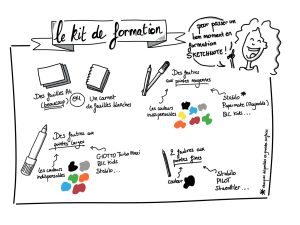 le kit de formation
pour passer un
bon moment en
formation
SKETCHNOTE !
Des feuilles A4
(beaucoup)
OU
Un carnet
de feuilles blanches
Des feutres aux
pointes moyennes
Les couleurs
indispensables
Stabilo *
Papermate (Flair)
BIC Kids...
Des feutres aux
pointes larges
Les couleurs
indispensables
GIOTTO Turbo Maxi
BIC Kids
Stabilo...
2 feutres aux
pointes fines
couleur
Stabilo
PILOT
Staedtler...